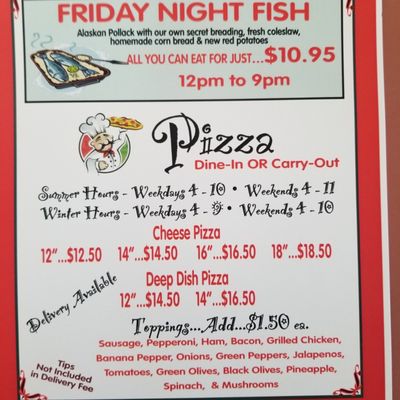 FRIDAY NIGHT FISH
Alaskan Pollack with our own secret breading, fresh coleslaw,
homemade corn bread & new red potatoes
ALL YOU CAN EAT FOR JUST...$10.95
12pm to 9pm
Pizza
Dine-In OR Carry-Out
Summer Hours - Weekdays 4 - 10 • Weekends 4 - 11
Winter Hours - Weekdays 4 - 9 • Weekends 4 - 10
Cheese Pizza
12"...$12.50 14"...$14.50 16"...$16.50 18"...$18.50
Deep Dish Pizza
12"...$14.50 14"...$16.50
Delivery Available
Toppings...Add...$1.50 ea.
Sausage, Pepperoni, Ham, Bacon, Grilled Chicken,
Banana Pepper, Onions, Green Peppers, Jalapenos,
Tomatoes, Green Olives, Black Olives, Pineapple,
Spinach, & Mushrooms
Tips
Not Included
in Delivery Fee